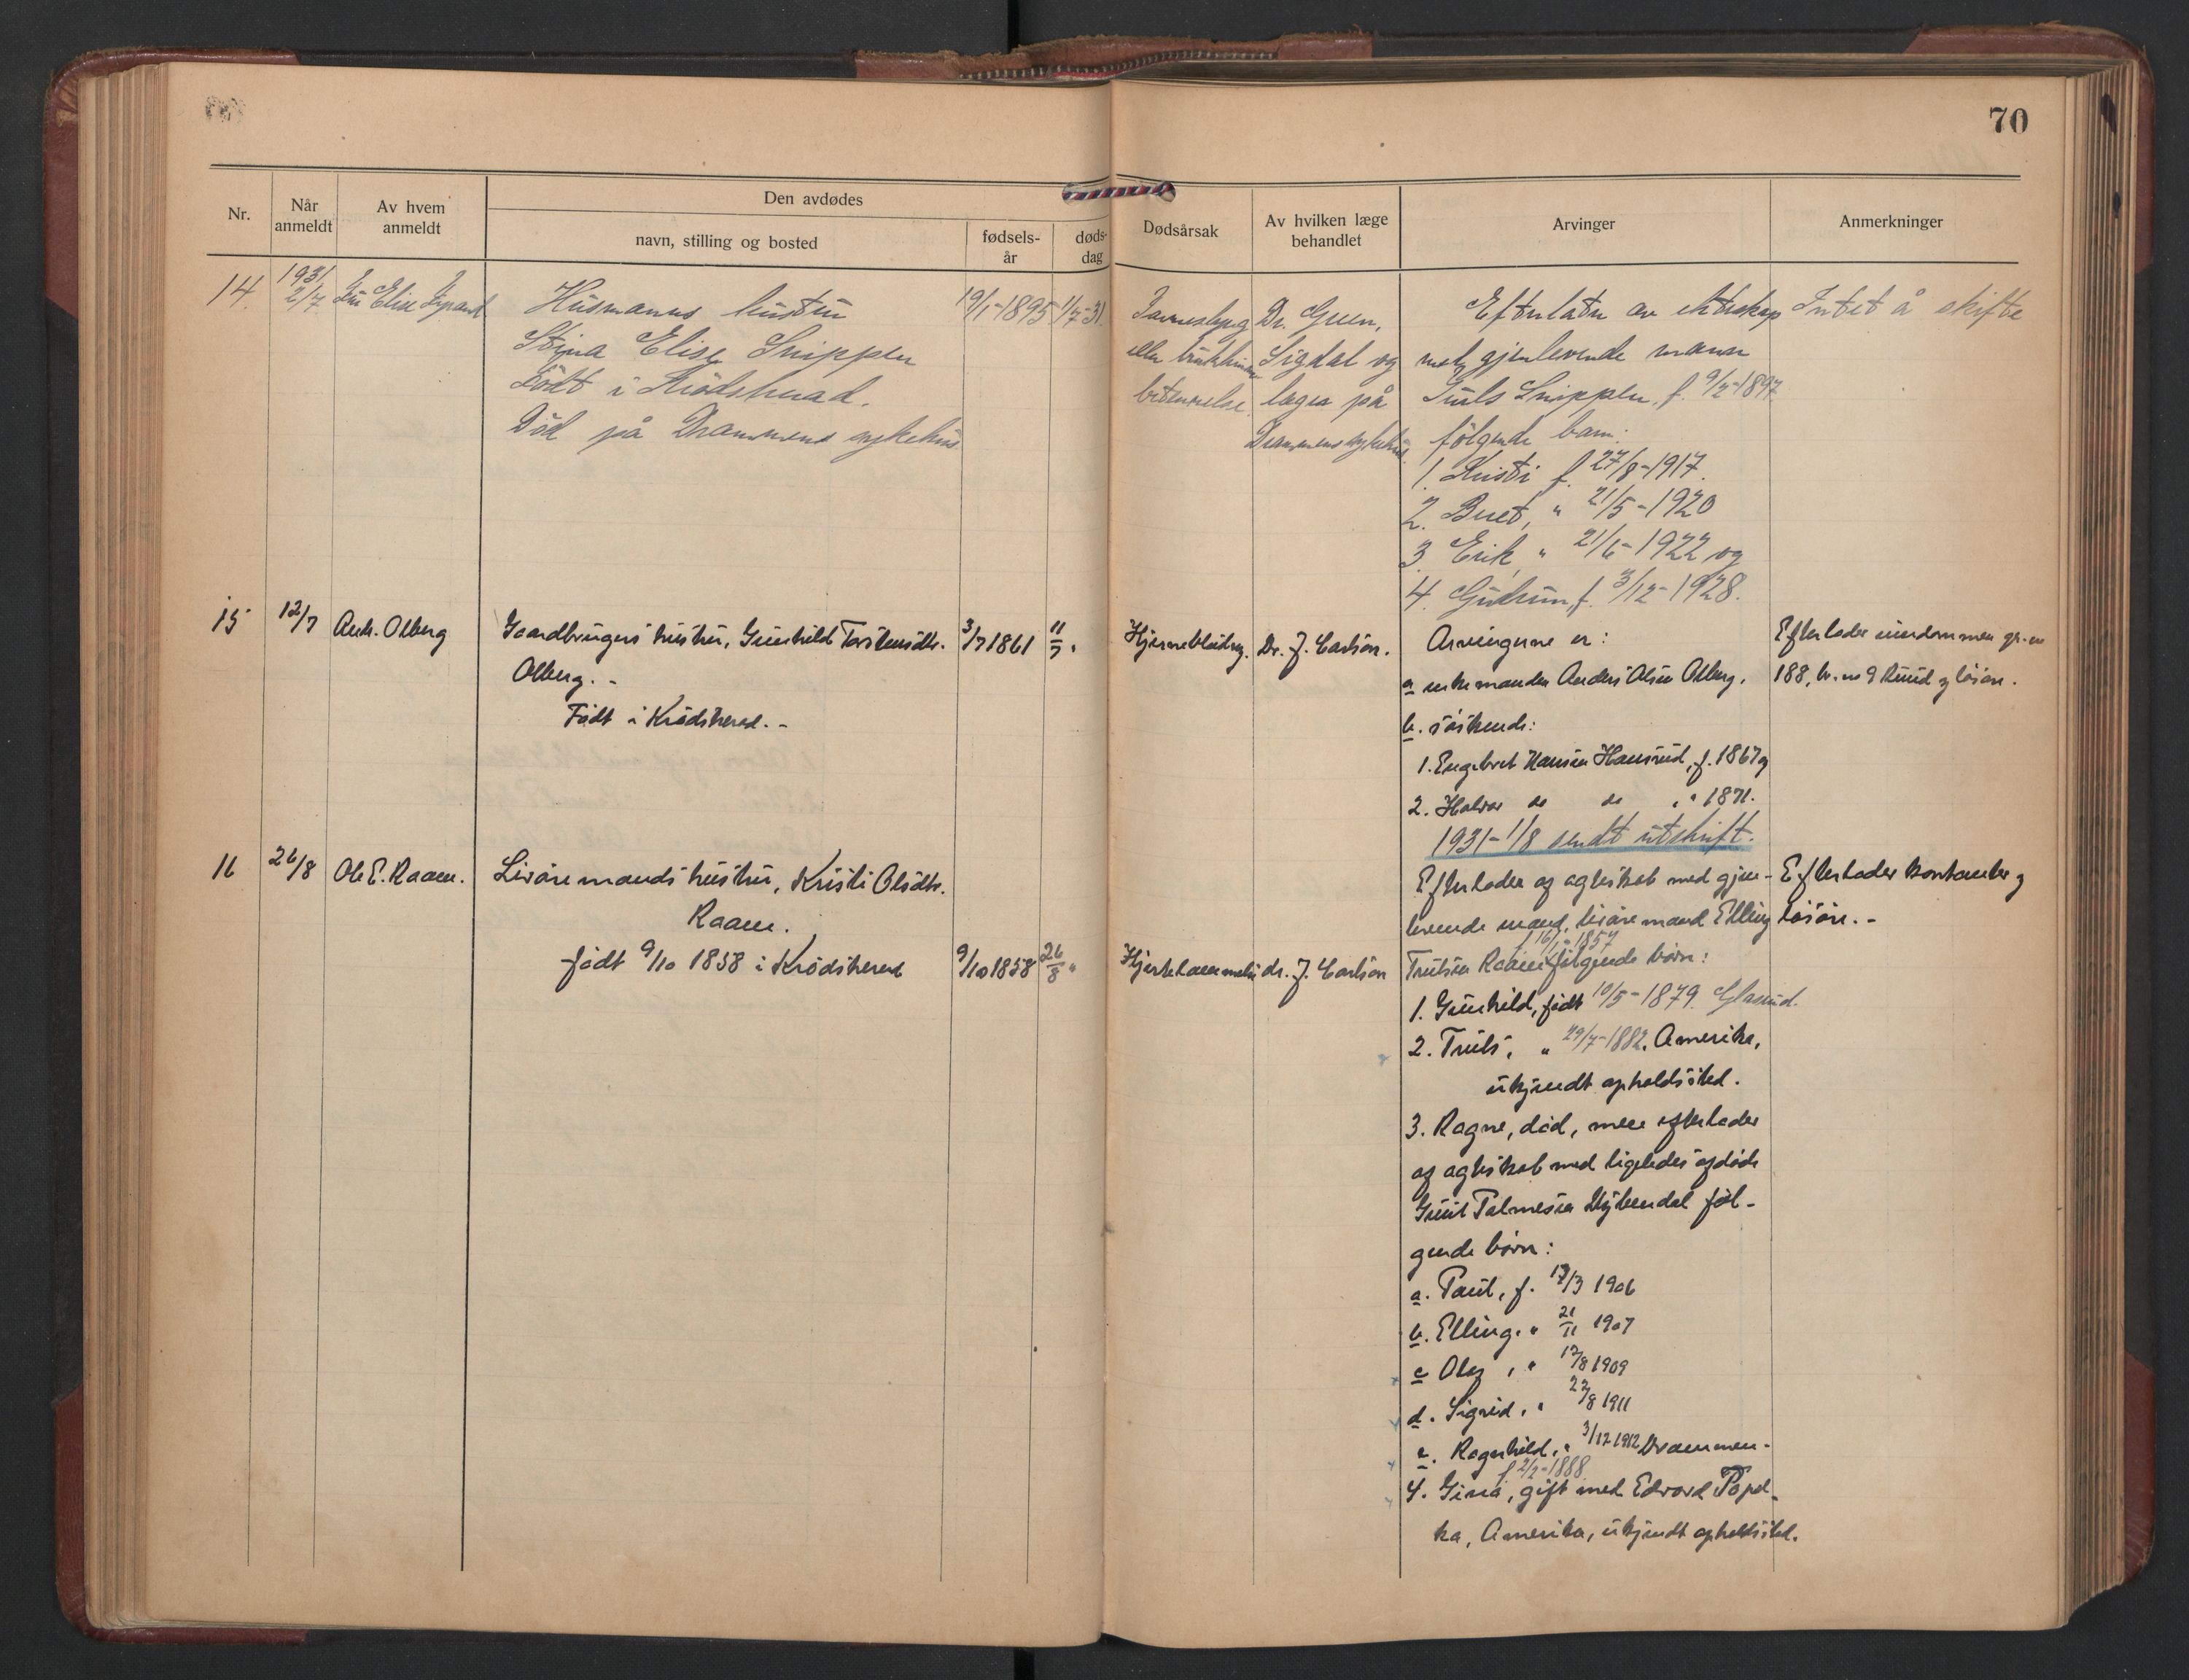 70
Nr.
Når anmeldt
Av hvem anmeldt
Den avdødes
navn, stilling og bosted
fødsels-år
døds-dag
Dødsårsak
Av hvilken læge behandlet
Arvinger
Anmerkninger
14.
1931
2/7
Elise
Husmanns hustru
Stina Elise Snippen
Født i Krødsherad.
Død på Drammens sykehus
19/1-1895
1/7-31
betennelse.
Dr. Green,
Sigdal og
leger på
Drammens sykehus.
Efterlater av ekteskap
med gjenlevende mann
Truls Snippen, f. 9/2-1897
følgende barn:
1. Kristi f. 27/8-1917.
2. Beret, " 21/5-1920
3. Erik, " 21/6-1922 og
4. Gudrun, f. 3/12-1928.
Intet å skifte
15
12/7
And. Olberg
Gaardbrugers hustru, Gunhild Torstensdtr.
Olberg. -
Født i Krødsherad. -
3/7 1861
11/7 "
Hjerneblødng.
Dr. J. Carlson.
Arvingerne er:
a enkemanden Anders Olsen Olberg.
b. søskende:
1. Engebret Hansen Hansrud, f. 1867 og
2. Halvor do do " " 1871.
1931-1/8 sendt utskrift.
Efterlader eiendommen gr.no
188, br.no 9 Ruud og løsøre.
16
26/8
Ole E. Raaen.
Livøremands hustru, Kristi Olsdtr.
Raaen.
født 9/10 1858 i Krødsherad
9/10 1858
26/8 "
Hjertelammelse
dr. J. Carlson
Efterlader af ægteskab med gjen-
levende mand, livøremand Elling
f 16/1-1857
Trulsen Raaen følgende børn:
1. Gunhild, født 10/5-1879. Glesrud.
2. Truls, " 29/7-1882. Amerika,
ukjendt opholdssted.
3. Ragne, død, men efterlader
af ægteskab med ligeledes afdøde
Guut Palmesen følgende børn:
a. Paul, f. 17/3 1906
b. Elling. " 21/11 1907
c Olaf, " 12/8 1909
d. Sigrid, " 22/8 1911
e. Ragnhild, " 3/12-1912 Drammen.
f. 2/2-1888
4. Gina, gift med Edvard Popel-
ka, Amerika, ukjendt opholdssted.
Efterlader kontanter og
løsøre. -